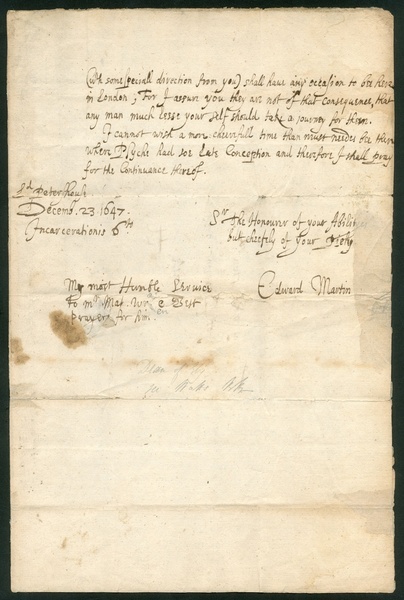 (wth some speciall direction from you) shall have any occasion to bee here
in London; For I assure you they are not of that Consequence, that
any man much lesse your self should take a journey for them.
I cannot wish a more cheerfull time than must needes bee there
where Psyche had soe late Conception and therefore I shall pray
for the Continuance thereof.
Decemb. 23. 1647.
Incarcerationis 6to
Sr the Honourer of your Abilit
but cheefly of your
Edward Martin
My most Humble Service
to mr & Best
prayers for him